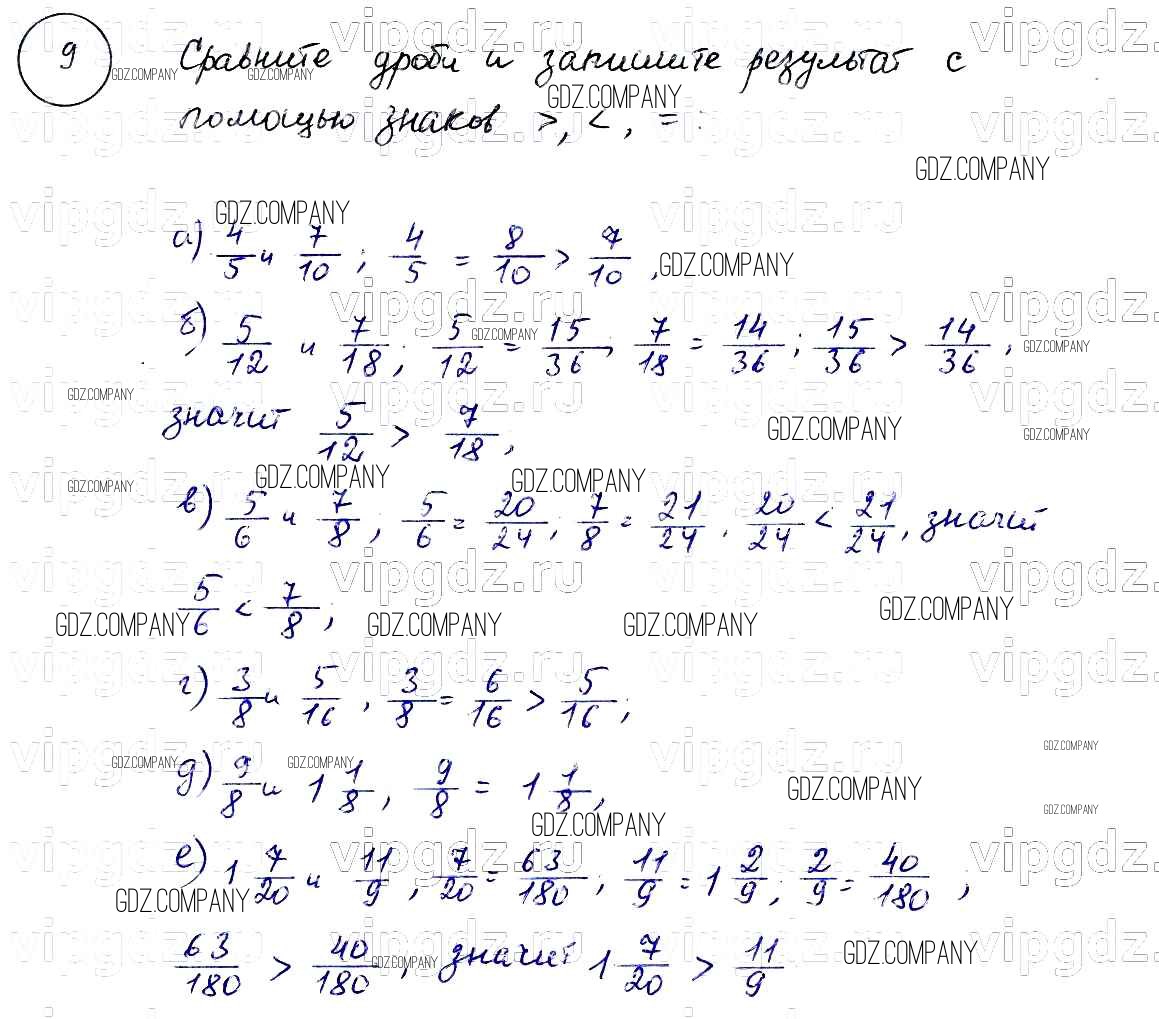 9 Сравните дроби и запишите результат с
помощью знаков >, <, = :
а) 4/5 и 7/10 ; 4/5 = 8/10 > 7/10 ,
б) 5/12 и 7/18 ; 5/12 = 15/36 , 7/18 = 14/36 ; 15/36 > 14/36 ,
значит 5/12 > 7/18 ;
в) 5/6 и 7/8 ; 5/6 = 20/24 ; 7/8 = 21/24 , 20/24 < 21/24 , значит
5/6 < 7/8 ;
г) 3/8 и 5/16 , 3/8 = 6/16 > 5/16 ;
д) 9/8 и 1 1/8 , 9/8 = 1 1/8 ,
е) 1 7/20 и 11/9 , 7/20 = 63/180 ; 11/9 = 1 2/9 ; 2/9 = 40/180 ,
63/180 > 40/180 , значит 1 7/20 > 11/9
GDZ.COMPANY
vipgdz.ru